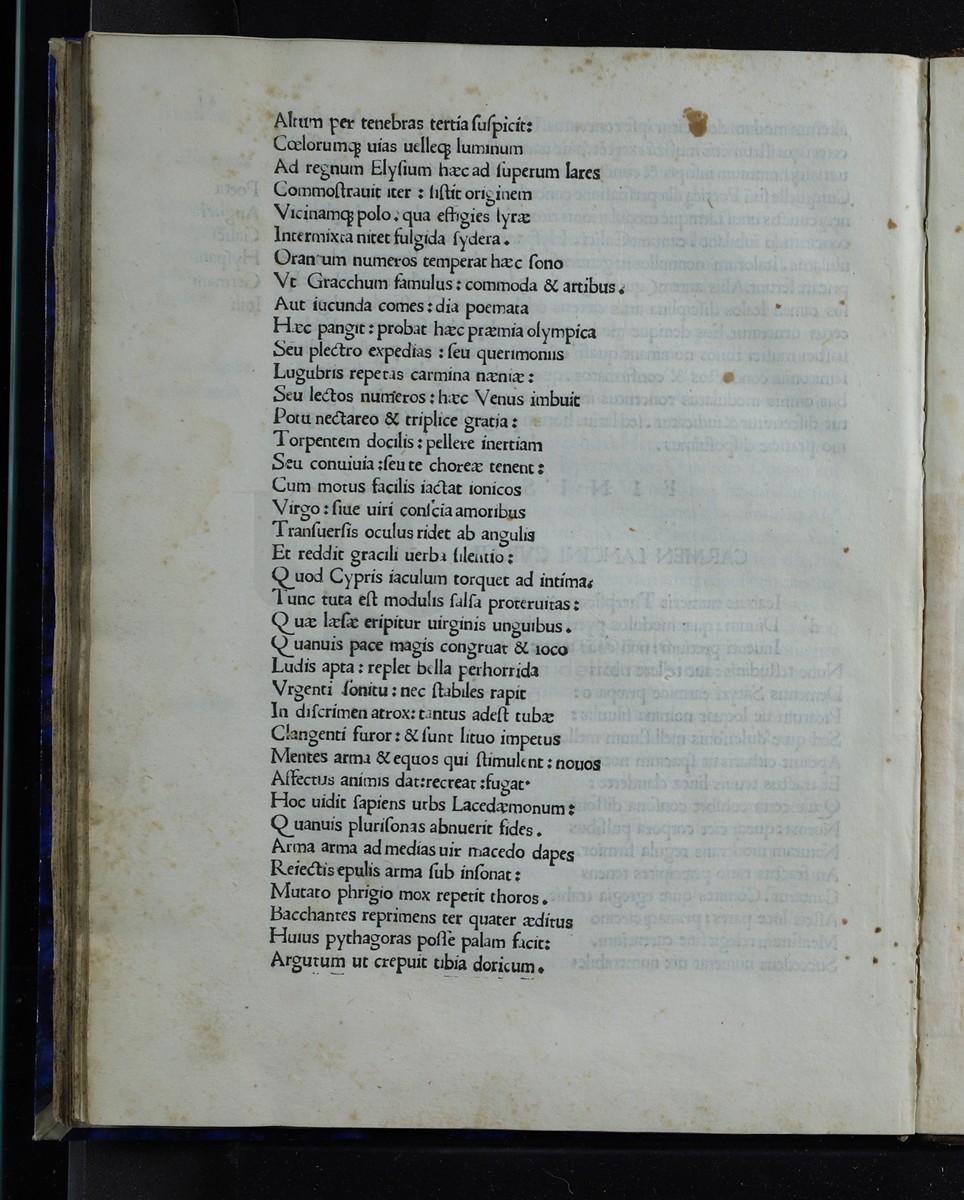 Altum per tenebras tertia ſuſpicit:
Cœlorumqꝫ uias uelleqꝫ luminum
Ad regnum Elyſium hæc ad ſuperum lares
Commoſtrauit iter : ſiſtit originem
Vicinamqꝫ polo. qua effigies lyræ
Intermixta nitet fulgida ſydera.
Orantum numeros temperat hæc ſono
Vt Gracchum famulus : commoda & artibus.
Aut iucunda comes : dia poemata
Hæc pangit : probat hæc præmia olympica
Seu plectro expedias : ſeu querimoniis
Lugubris repetas carmina næniæ :
Seu lectos numeros : hæc Venus imbuit
Potu nectareo & triplice gratia :
Torpentem docilis : pellere inertiam
Seu conuiuia : ſeu te choreæ tenent :
Cum motus facilis iactat ionicos
Virgo : ſiue uiri conſcia amoribus
Tranſuerſis oculus ridet ab angulis
Et reddit gracili uerba ſilentio :
Quod Cypris iaculum torquet ad intima.
Tunc tuta eſt modulis ſalſa proteruitas :
Quæ læſæ eripitur uirginis unguibus.
Quanuis pace magis congruat & ioco
Ludis apta : replet bella perhorrida
Vrgenti ſonitu : nec ſtabiles rapit
In diſcrimen atrox: tantus adeſt tubæ
Clangenti furor : & ſunt lituo impetus
Mentes arma & equos qui ſtimulent : nouos
Affectus animis dat:recreat :fugat.
Hoc uidit ſapiens urbs Lacedæmonum :
Quanuis pluriſonas abnuerit fides.
Arma arma ad medias uir macedo dapes
Reiectis epulis arma ſub inſonat :
Mutato phrigio mox repetit thoros.
Bacchantes reprimens ter quater æditus
Huius pythagoras poſſe palam facit:
Argutum ut crepuit tibia doricum.